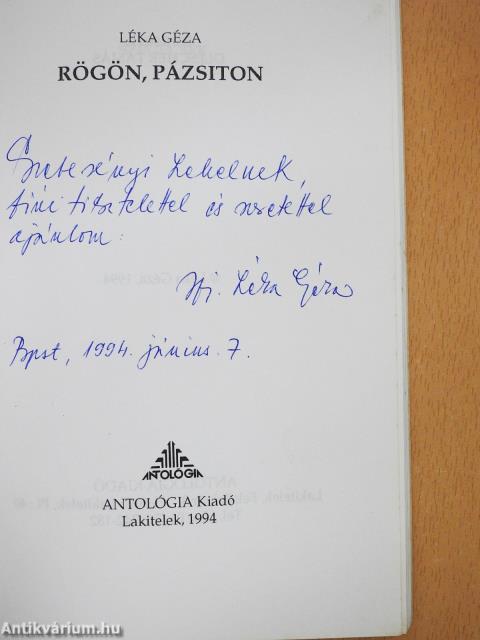 LÉKA GÉZA
RÖGÖN, PÁZSITON
Lehelnek,
fiúi tisztelettel és szeretettel
ajánlom:
Ifj. Léka Géza
Bpst, 1994. június 7.
ANTOLÓGIA
ANTOLÓGIA Kiadó
Lakitelek, 1994
Antikvárium.hu